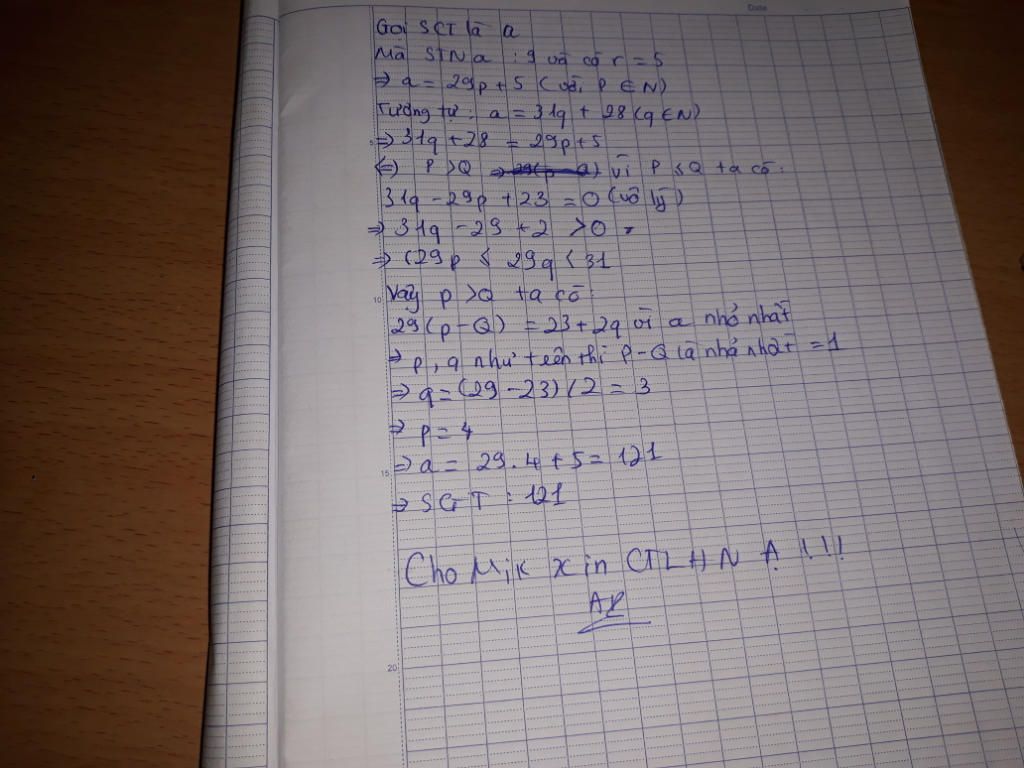 Date
Gọi SCT là a
Mà STN a : 9 và có r = 5
⇒ a = 29p + 5 (với P ∈ N)
Tương tự : a = 31q + 28 (q ∈ N)
5 ⇒ 31q + 28 = 29p + 5
⇔ P > Q vì P ≤ Q ta có :
31q - 29p + 23 = 0 (vô lý)
⇒ 31q - 29 + 2 > 0
⇒ (29p ≤ 29q < 31
10 Vậy p > Q ta có :
29(p - Q) = 23 + 2q vì a nhỏ nhất
⇒ p, q như trên thì P - Q là nhỏ nhất = 1
⇒ q = (29 - 23) / 2 = 3
⇒ p = 4
15 ⇒ a = 29 . 4 + 5 = 121
⇒ SCT : 121
Cho Mik xin CTLHN Ạ !!!
20